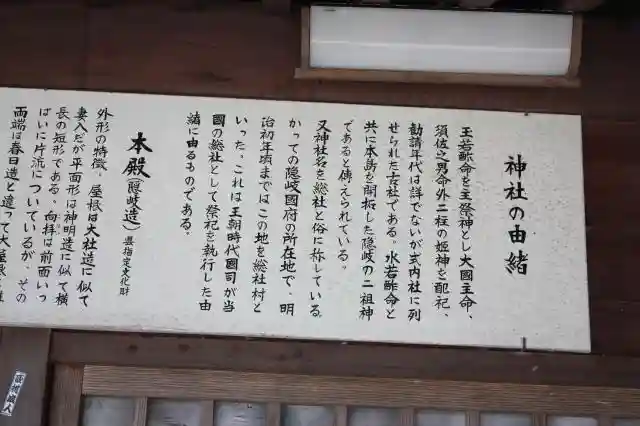 神社の由緒
玉若酢命を主祭神とし大國主命、
須佐之男命外二柱の姫神を配祀、
勧請年代は詳でないが式内社に列
せられた古社である。水若酢命と
共に本島を開拓した隠岐の二祖神
であると傳えられている。
又神社名を総社と俗に称している。
かっての隠岐國府の所在地で、明
治初年頃まではこの地を総社村と
いった。これは王朝時代國司が当
國の総社として祭祀を執行した由
緒に由るものである。
本殿(隠岐造)県指定文化財
外形の特徴。屋根は大社造に似て
妻入だが平面形は神明造に似て横
長の矩形である。向拝は前面いっ
ぱいに片流についているが、その
両端は春日造と違って大屋根と離